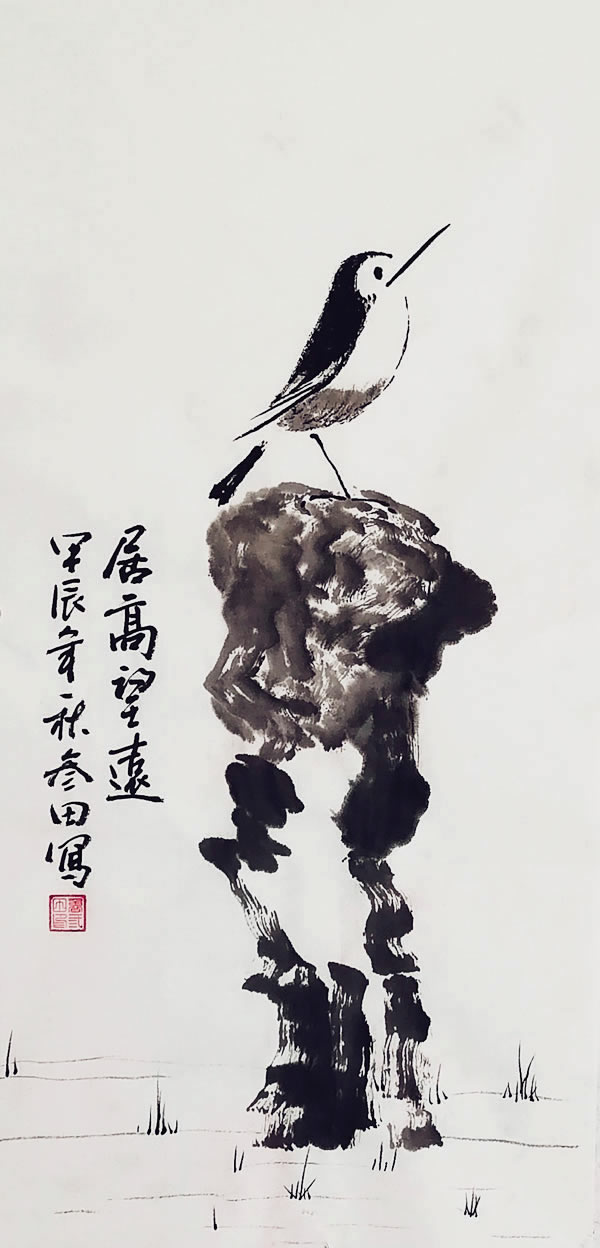 居高望遠
甲辰年秋叄田寫